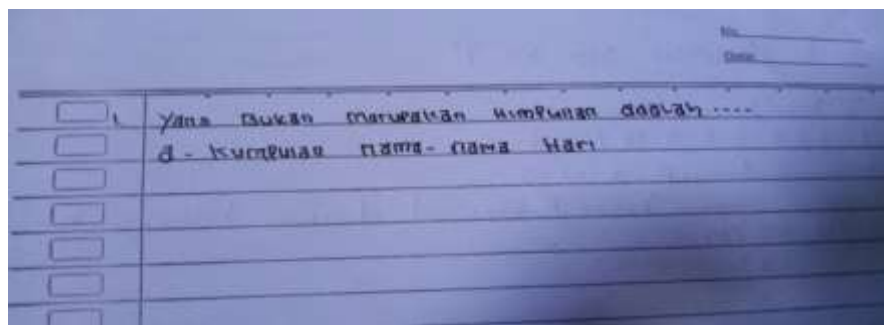 No.
Date.
1. Yang Bukan merupakan Himpunan adalah ....
a - Kumpulan nama-nama Hari